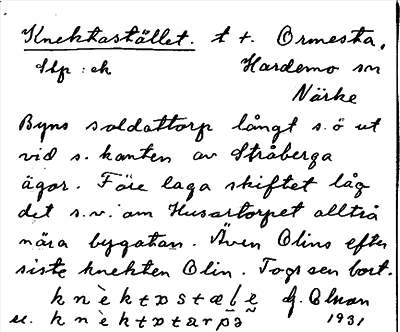 Knektastället. t t. Ormesta,
Stp : ek Hardemo sn
Närke
Byns soldattorp långt s. ö ut
vid s. kanten av Stråberga
ägor. Före laga skiftet låg
det s.v. om Husartorpet alltså
nära bygatan. Även Olins efter
siste knekten Olin. Togs sen bort.
1931